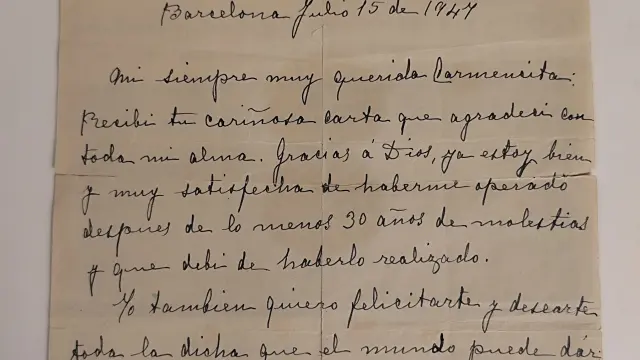 Barcelona Julio 15 de 1947
Mi siempre muy querida Carmencita:
Recibi tu cariñosa carta que agradeci con
toda mi alma. Gracias á Dios, ya estoy bien
y muy satisfecha de haberme operado
despues de lo menos 30 años de molestias
y que debi de haberlo realizado.
Yo tambien quiero felicitarte y desearte
toda la dicha que el mundo puede dár-